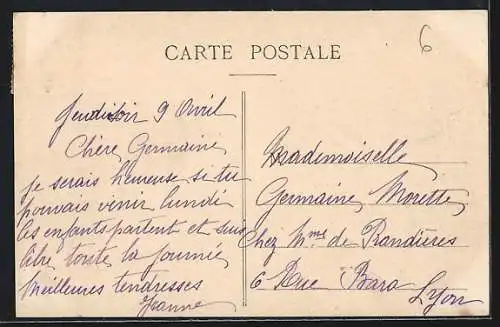 CARTE POSTALE
6
Jeudi soir 9 Avril
Chère Germaine
je serais heureuse si tu
pouvais venir lundi
les enfants partent et suis
libre toute la journée
Meilleures tendresses
Jeanne
Mademoiselle
Germaine Morette
Chez Mme de Prandières
6 Rue Bara
Lyon